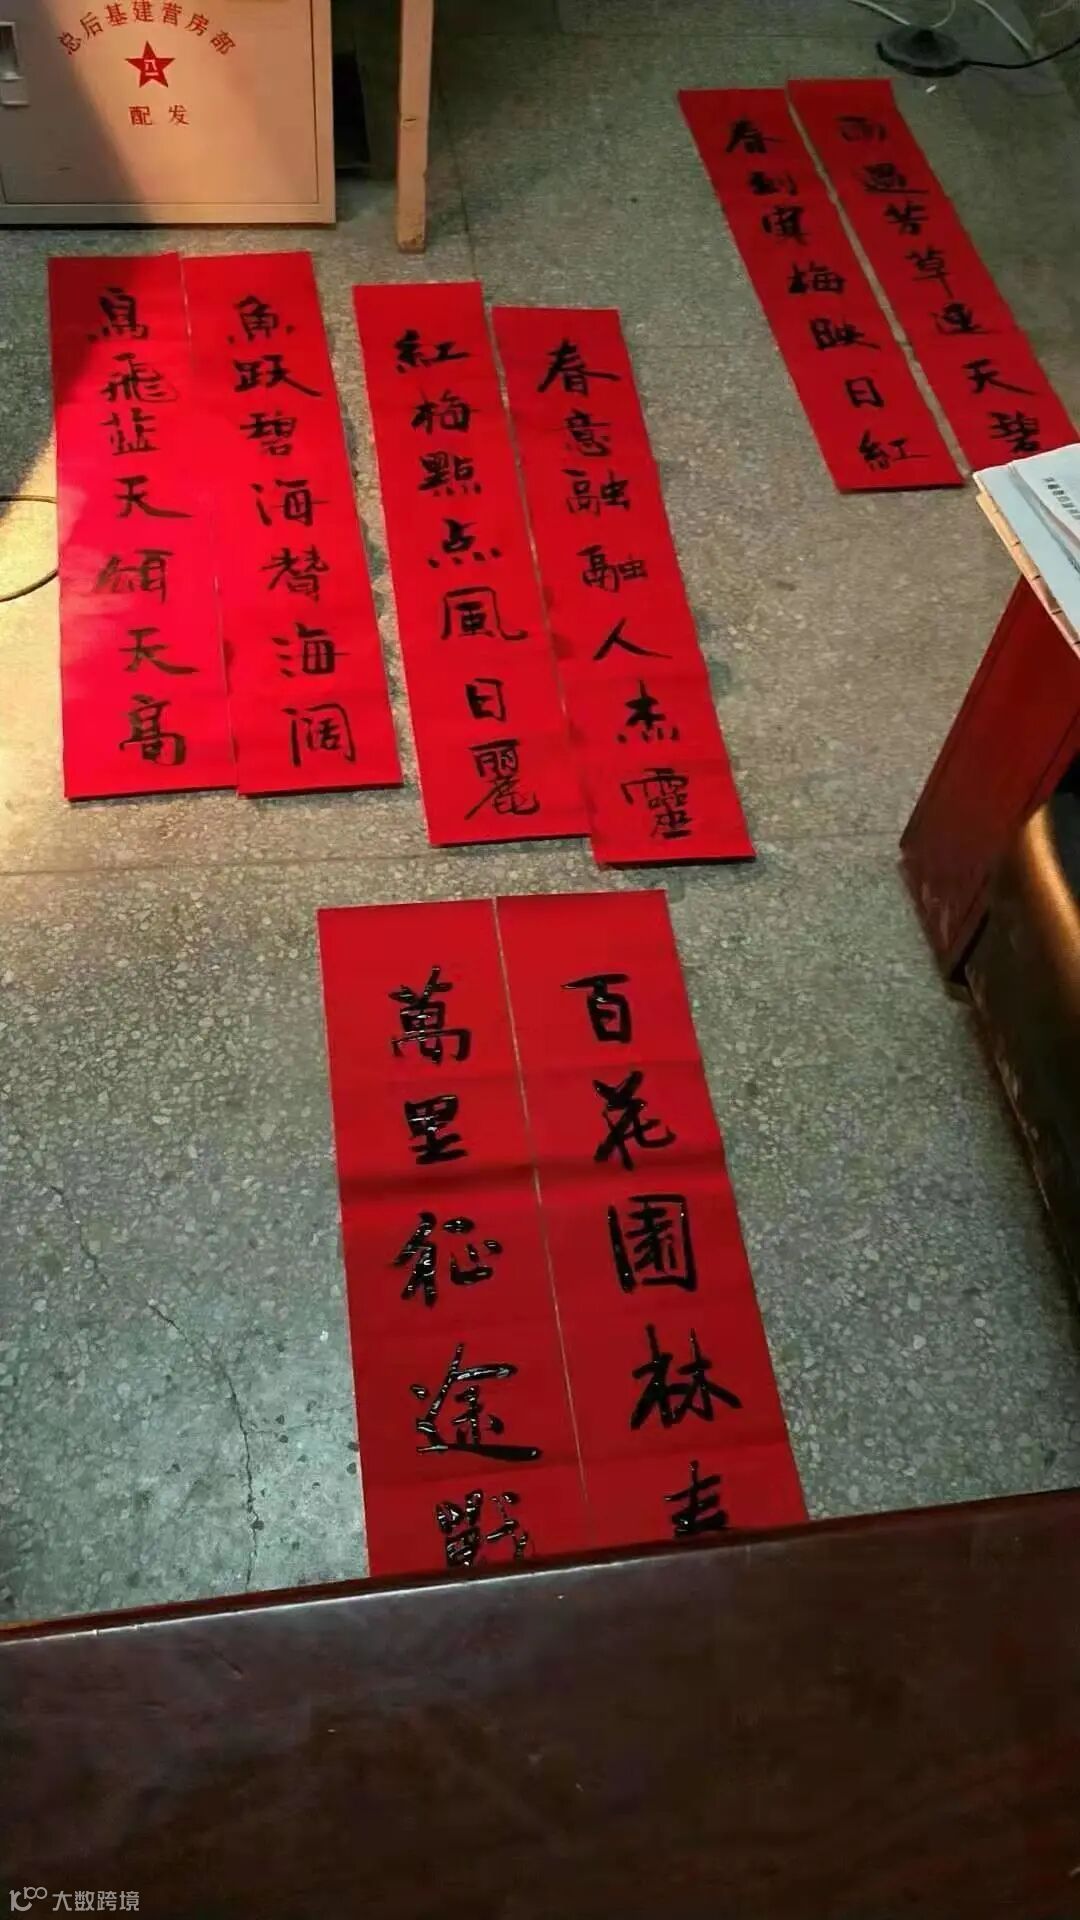 总后基建营房部
八一
配发
鳥飛蓝天頌天高
魚跃碧海赞海阔
紅梅點点風日麗
春意融融人杰靈
春到寒梅映日紅
雨過芳草連天碧
萬里征途戰
百花園林春
大数跨境